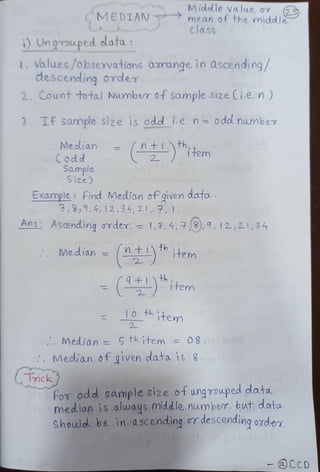 MEDIAN → Middle value or
mean of the middle
class
25
i) Ungrouped data:
1. Values/observations arrange in ascending/
descending order.
2. Count total Number of sample size (i.e n)
3. If sample size is odd i.e. n = odd number
Median (odd Sample Size) = (n+1/2)th item
Example: Find Median of given data.
3,8,9,4,12,34,21,7,1.
Ans: Ascending order. = 1,3,4,7,8,9,12,21,34
∴ Median = (n+1/2)th item
= (9+1/2)th item
= 10/2 th item
∴ Median = 5th item = 08.
∴ Median of given data is 8.
Trick
For odd sample size of ungrouped data
median is always middle number but data
should be in ascending or descending order.
- @CCD